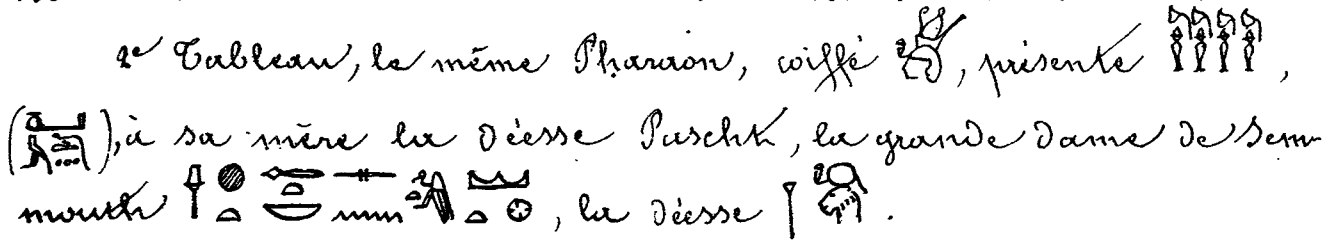 2e Tableau, le même Pharaon, coiffé , présente ,
( ), à sa mère la déesse Pascht, la grande dame de Sem-
mouth , la déesse .